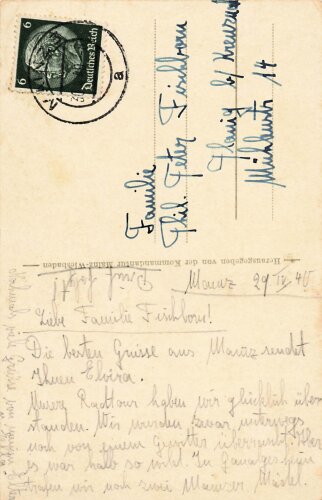 6 Deutsches Reich 6
a
Familie
Phil. Peter Fischborn
Planig b/ Kreuznach
Mühlenstr. 14
Herausgegeben von der Kommandantur Mainz-Wiesbaden
Mainz 29 IV 40
Liebe Familie Fischborn!
Die besten Grüsse aus Mainz sendet
Ihnen Elvira.
Unsere Radtour haben wir glücklich über-
standen. Wir wurden zwar unterwegs
noch von einem Gewitter überrascht. Aber
es war halb so wild. In
trafen wir noch zwei Mainzer Mädel.